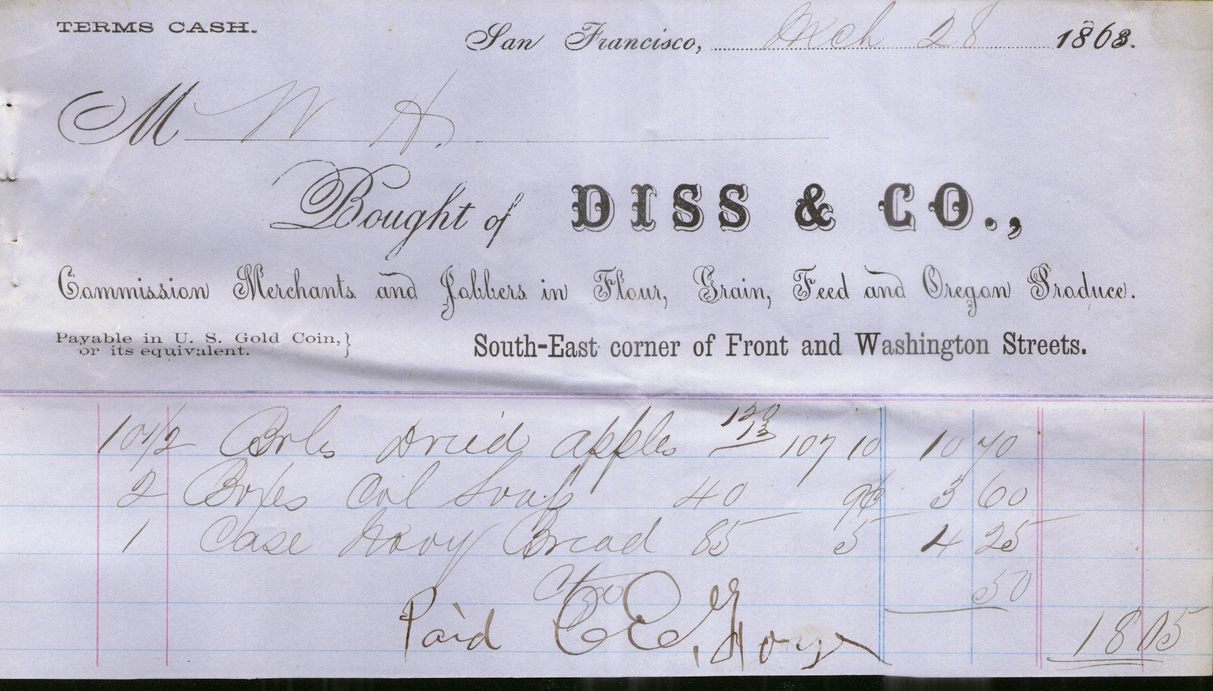 TERMS CASH.
San Francisco, Mch 28 1863.
M W H.
Bought of DISS & CO.,
Commission Merchants and Jobbers in Flour, Grain, Feed and Oregon Produce.
Payable in U. S. Gold Coin,}
or its equivalent.
South-East corner of Front and Washington Streets.
10 1/2 Brls Dried apples 120 13 107 10 10 70
2 Boxes Col Soap 40 9 3 60
1 Case Navy Bread 85 5 4 25
50
Paid 18 05